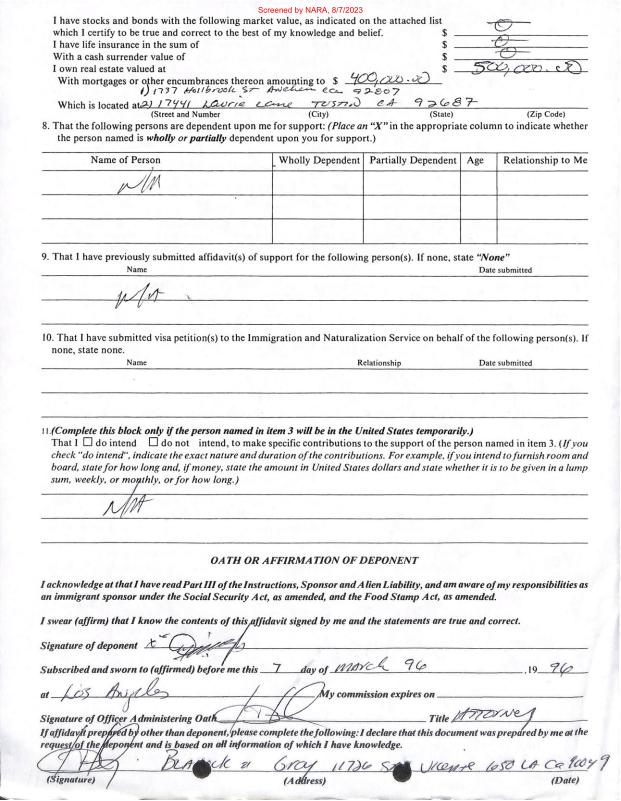 Screened by NARA, 8/7/2023
I have stocks and bonds with the following market value, as indicated on the attached list
which I certify to be true and correct to the best of my knowledge and belief. $ 0
I have life insurance in the sum of $ 0
With a cash surrender value of $ 0
I own real estate valued at $ 500,000.00
With mortgages or other encumbrances thereon amounting to $ 400,000.00
1) 1737 Hollbrook St Anehem Ca 92807
Which is located at 2) 17441 Laurie Lane Tustin CA 92687
(Street and Number) (City) (State) (Zip Code)
8. That the following persons are dependent upon me for support: (Place an "X" in the appropriate column to indicate whether
the person named is wholly or partially dependent upon you for support.)
Name of Person Wholly Dependent Partially Dependent Age Relationship to Me
N/A
9. That I have previously submitted affidavit(s) of support for the following person(s). If none, state "None"
Name Date submitted
N/A
10. That I have submitted visa petition(s) to the Immigration and Naturalization Service on behalf of the following person(s). If
none, state none.
Name Relationship Date submitted
11. (Complete this block only if the person named in item 3 will be in the United States temporarily.)
That I ☐ do intend ☐ do not intend, to make specific contributions to the support of the person named in item 3. (If you
check "do intend", indicate the exact nature and duration of the contributions. For example, if you intend to furnish room and
board, state for how long and, if money, state the amount in United States dollars and state whether it is to be given in a lump
sum, weekly, or monthly, or for how long.)
N/A
OATH OR AFFIRMATION OF DEPONENT
I acknowledge at that I have read Part III of the Instructions, Sponsor and Alien Liability, and am aware of my responsibilities as
an immigrant sponsor under the Social Security Act, as amended, and the Food Stamp Act, as amended.
I swear (affirm) that I know the contents of this affidavit signed by me and the statements are true and correct.
Signature of deponent x
Subscribed and sworn to (affirmed) before me this 7 day of March 96 , 19 96
at Los Angeles My commission expires on
Signature of Officer Administering Oath Title Attorney
If affidavit prepared by other than deponent, please complete the following: I declare that this document was prepared by me at the
request of the deponent and is based on all information of which I have knowledge.
Gray 11726 San Vicente 650 LA Ca 90049
(Signature) (Address) (Date)